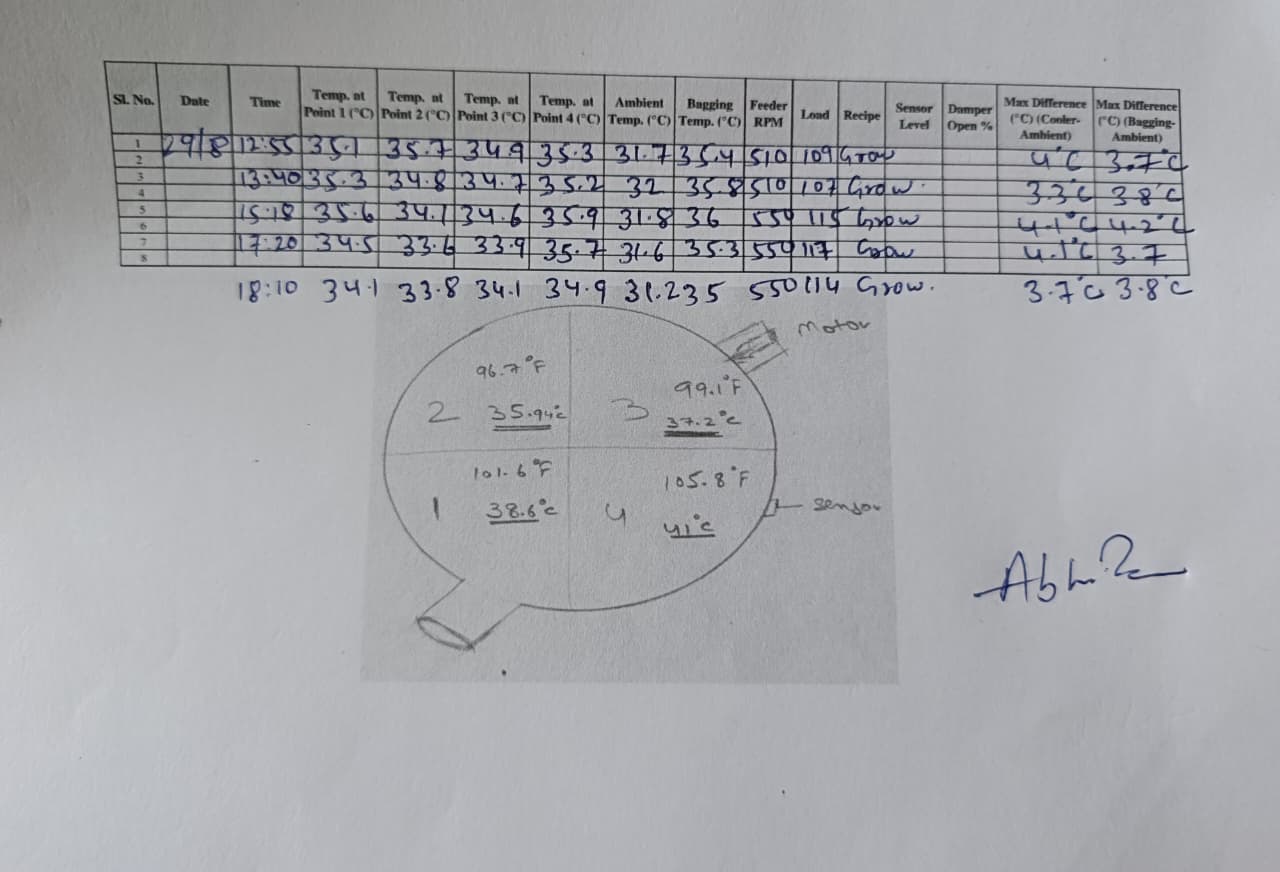 Sl. No. Date Time Temp. at Point 1 (°C) Temp. at Point 2 (°C) Temp. at Point 3 (°C) Temp. at Point 4 (°C) Ambient Temp. (°C) Bagging Temp. (°C) Feeder RPM Load Recipe Sensor Level Damper Open % Max Difference (°C) (Cooler-Ambient) Max Difference (°C) (Bagging-Ambient)
1 29/8 12:55 35.1 35.7 34.9 35.3 31.7 35.4 510 109 Grow 4°C 3.7°C
2
3 13:40 35.3 34.8 34.7 35.2 32 35.8 510 107 Grow. 3.3°C 3.8°C
4
5 15:18 35.6 34.1 34.6 35.9 31.8 36 550 115 Grow 4.1°C 4.2°C
6
7 17:20 34.5 33.6 33.9 35.7 31.6 35.3 550 117 Grow 4.1°C 3.7
8
18:10 34.1 33.8 34.1 34.9 31.2 35 550 114 Grow. 3.7°C 3.8°C
Motor
96.7°F
99.1°F
2 35.94°C 3 37.2°C
101.6°F
105.8°F
1 38.6°C 4 41°C
sensor